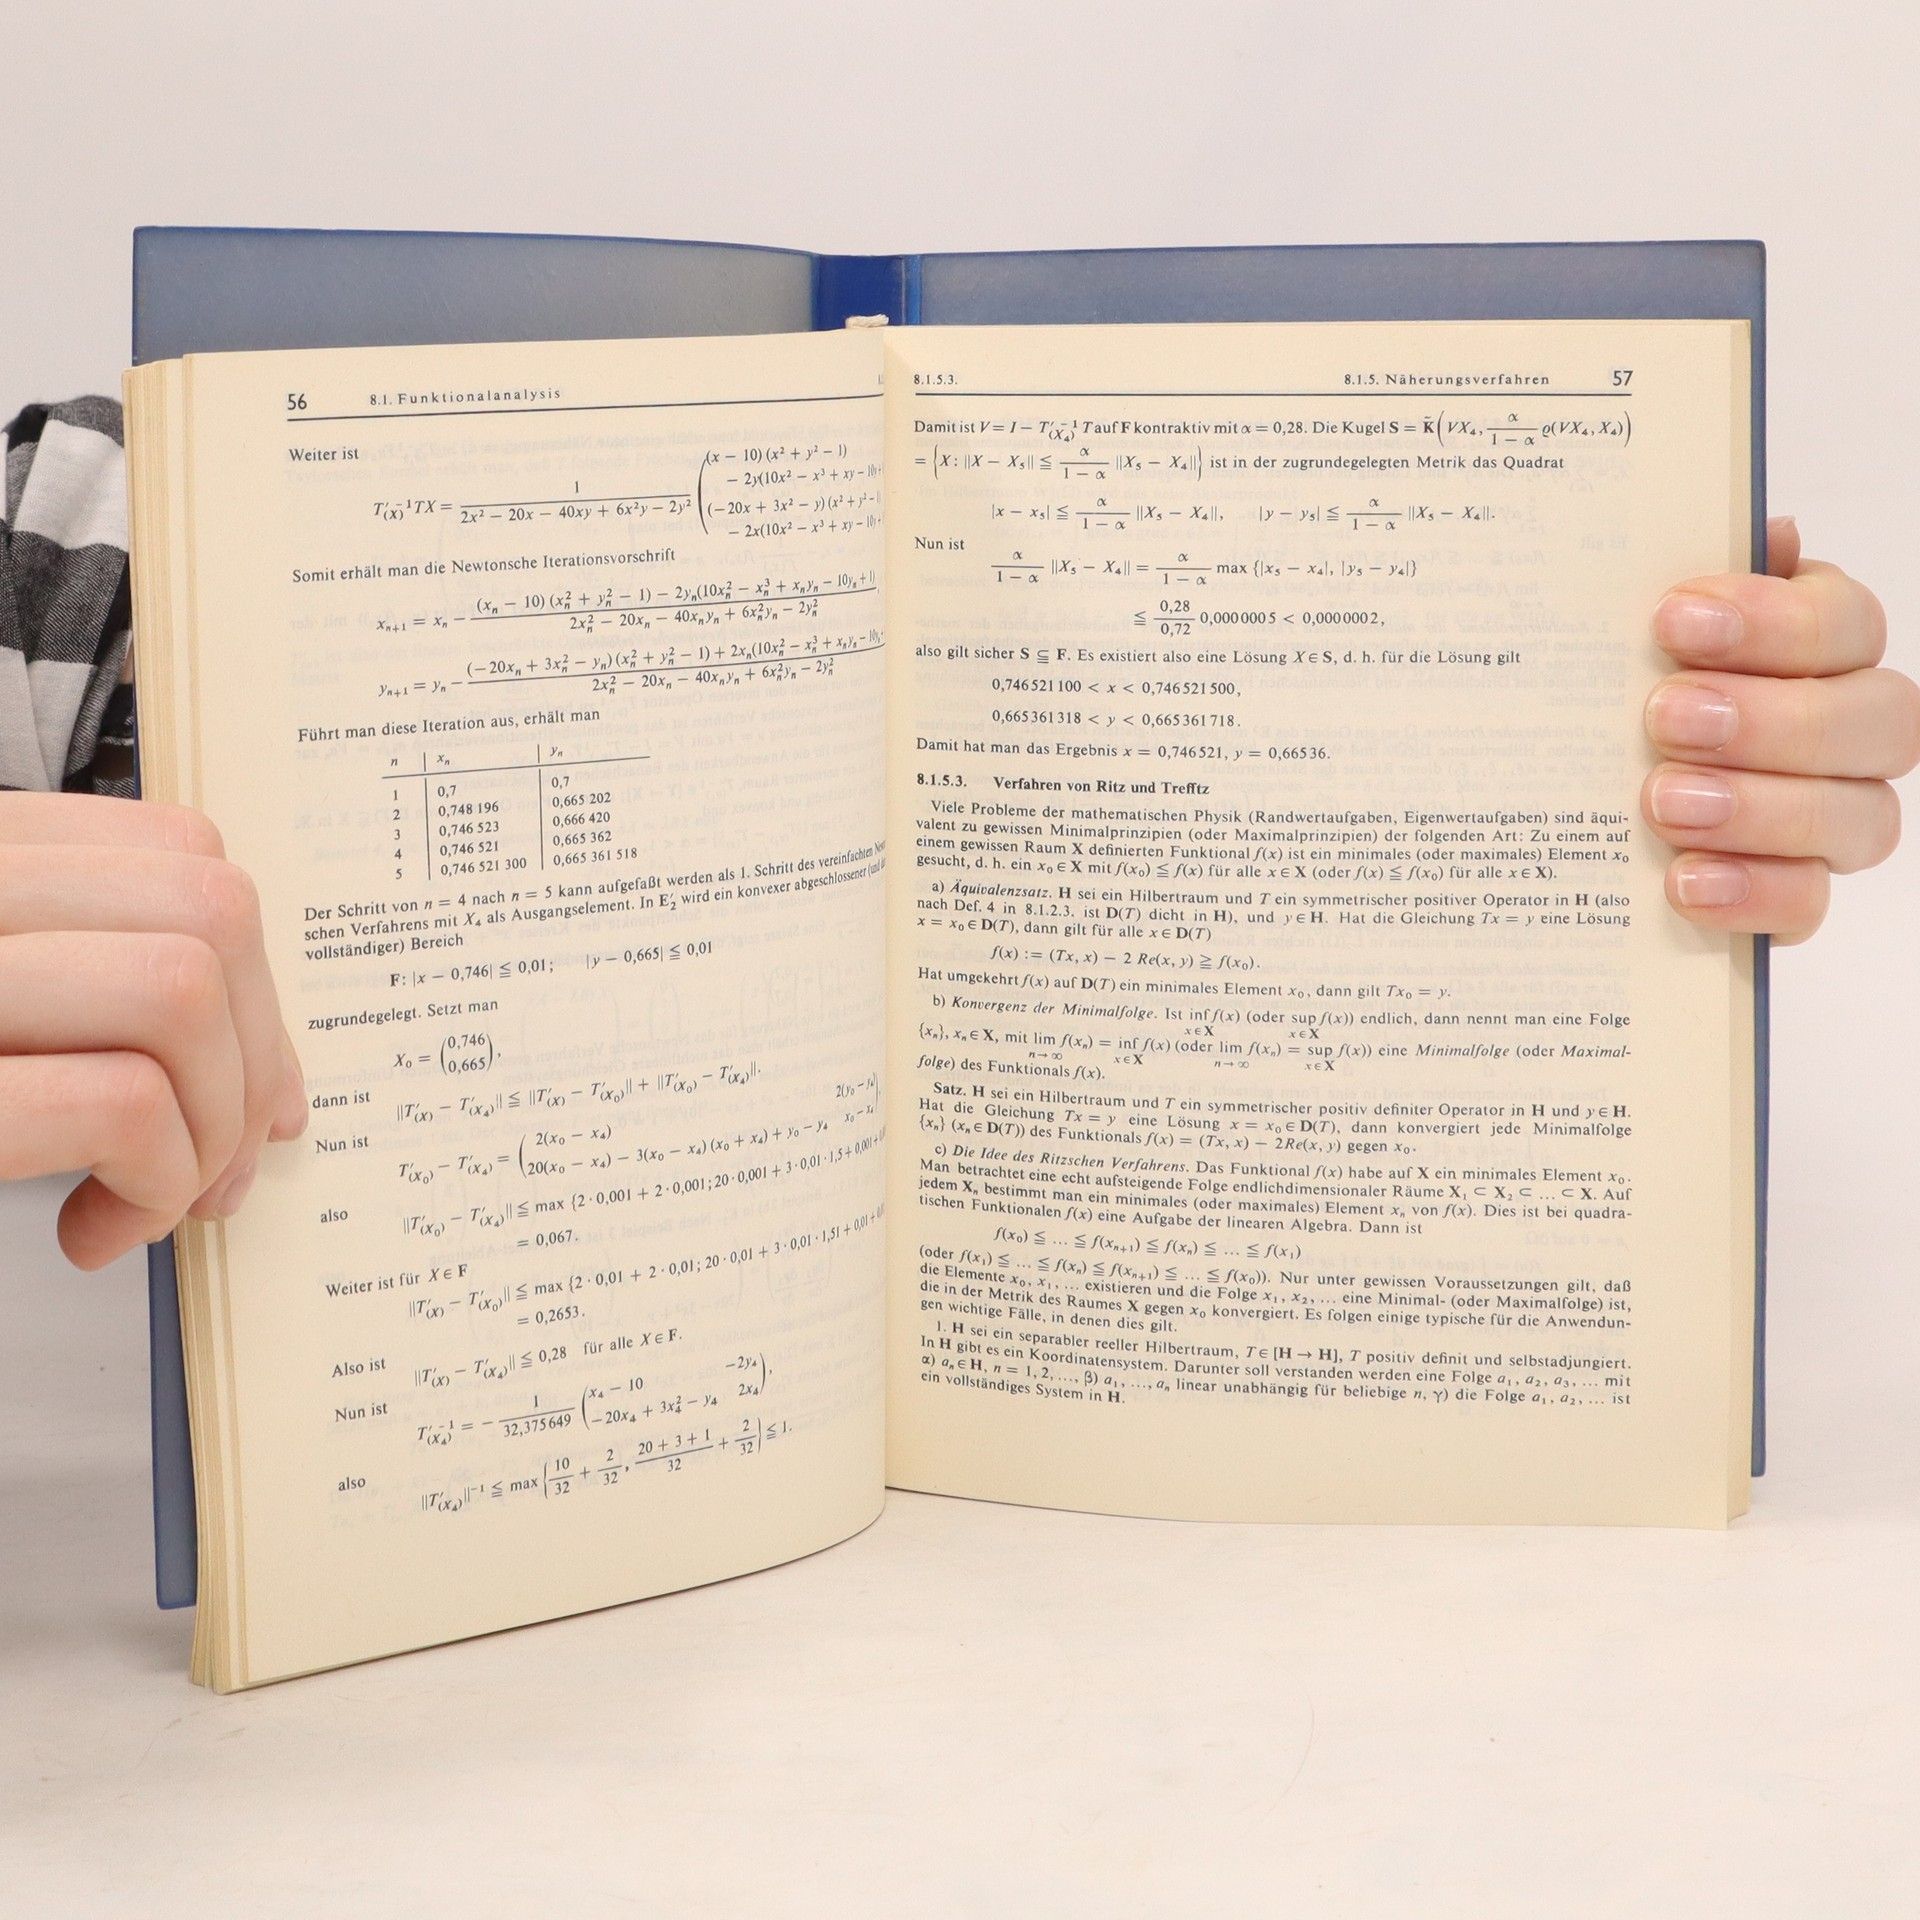 56 8.1. Funktionalanalysis
Weiter ist
T′₍ₓ₎⁻¹TX = 1 / (2x² − 20x − 40xy + 6x²y − 2y²) ( (x − 10) (x² + y² − 1)
− 2y(10x² − x³ + xy − 10y
(−20x + 3x² − y) (x² + y² −
− 2x(10x² − x³ + xy − 10y
Somit erhält man die Newtonsche Iterationsvorschrift
xₙ₊₁ = xₙ − ((xₙ − 10) (xₙ² + yₙ² − 1) − 2yₙ(10xₙ² − xₙ³ + xₙyₙ − 10yₙ + 1)) / (2xₙ² − 20xₙ − 40xₙyₙ + 6xₙ²yₙ − 2yₙ²)
yₙ₊₁ = yₙ − ((−20xₙ + 3xₙ² − yₙ) (xₙ² + yₙ² − 1) + 2xₙ(10xₙ² − xₙ³ + xₙyₙ − 10yₙ) / (2xₙ² − 20xₙ − 40xₙyₙ + 6xₙ²yₙ − 2yₙ²)
Führt man diese Iteration aus, erhält man
n xₙ yₙ
1 0,7 0,7
2 0,748 196 0,665 202
3 0,746 523 0,666 420
4 0,746 521 0,665 362
5 0,746 521 300 0,665 361 518
Der Schritt von n = 4 nach n = 5 kann aufgefaßt werden als 1. Schritt des vereinfachten
schen Verfahrens mit X₄ als Ausgangselement. In E′₂ wird ein konvexer abgeschlossener
vollständiger) Bereich
F: |x − 0,746| ≦ 0,01; |y − 0,665| ≦ 0,01
zugrundegelegt. Setzt man
X₀ = (0,746
0,665),
dann ist
||T′(X) − T′(X₄)|| ≦ ||T′(X) − T′(X₀)|| + ||T′(X₀) − T′(X₄)||.
Nun ist
T′(X₀) − T′(X₄) = ( 2(x₀ − x₄) 2(y₀ − y₄)
20(x₀ − x₄) − 3(x₀ − x₄) (x₀ + x₄) + y₀ − y₄ x₀ − x₄
also
||T′(X₀) − T′(X₄)|| ≦ max {2 · 0,001 + 2 · 0,001; 20 · 0,001 + 3 · 0,01 · 1,5 + 0,001 +
= 0,067.
Weiter ist für X ∈ F
||T′(X) − T′(X₀)|| ≦ max {2 · 0,01 + 2 · 0,01; 20 · 0,01 + 3 · 0,01 · 1,51 + 0,01 +
= 0,2653.
Also ist
||T′(X) − T′(X₄)|| ≦ 0,28 für alle X ∈ F.
Nun ist
T′(X₄)⁻¹ = − 1 / 32,375649 ( x₄ − 10 −2y₄
−20x₄ + 3x₄² − y₄ 2x₄ ),
also
||T′(X₄)||⁻¹ ≦ max {10/32 + 2/32, (20 + 3 + 1)/32 + 2/32} ≦ 1.
8.1.5.3. 8.1.5. Näherungsverfahren 57
Damit ist V = I − T′(X₄)⁻¹ T auf F kontraktiv mit α = 0,28. Die Kugel S = K̄(VX₄, α/(1 − α) ϱ(VX₄, X₄))
= {X: ||X − X₅|| ≦ α/(1 − α) ||X₅ − X₄||} ist in der zugrundegelegten Metrik das Quadrat
|x − x₅| ≦ α/(1 − α) ||X₅ − X₄||, |y − y₅| ≦ α/(1 − α) ||X₅ − X₄||.
Nun ist
α/(1 − α) ||X₅ − X₄|| = α/(1 − α) max {|x₅ − x₄|, |y₅ − y₄|}
≦ 0,28/0,72 0,0000005 < 0,0000002,
also gilt sicher S ⊆ F. Es existiert also eine Lösung X ∈ S, d. h. für die Lösung gilt
0,746521100 < x < 0,746521500,
0,665361318 < y < 0,665361718.
Damit hat man das Ergebnis x = 0,746521, y = 0,66536.
8.1.5.3. Verfahren von Ritz und Trefftz
Viele Probleme der mathematischen Physik (Randwertaufgaben, Eigenwertaufgaben) sind äqui-
valent zu gewissen Minimalprinzipien (oder Maximalprinzipien) der folgenden Art: Zu einem auf
einem gewissen Raum X definierten Funktional f(x) ist ein minimales (oder maximales) Element x₀
gesucht, d. h. ein x₀ ∈ X mit f(x₀) ≦ f(x) für alle x ∈ X (oder f(x) ≦ f(x₀) für alle x ∈ X).
a) Äquivalenzsatz. H sei ein Hilbertraum und T ein symmetrischer positiver Operator in H (also
nach Def. 4 in 8.1.2.3. ist D(T) dicht in H), und y ∈ H. Hat die Gleichung Tx = y eine Lösung
x = x₀ ∈ D(T), dann gilt für alle x ∈ D(T)
f(x) := (Tx, x) − 2 Re(x, y) ≧ f(x₀).
Hat umgekehrt f(x) auf D(T) ein minimales Element x₀, dann gilt Tx₀ = y.
b) Konvergenz der Minimalfolge. Ist inf f(x) (oder sup f(x)) endlich, dann nennt man eine Folge
x∈X x∈X
{xₙ}, xₙ ∈ X, mit lim f(xₙ) = inf f(x) (oder lim f(xₙ) = sup f(x)) eine Minimalfolge (oder Maximal-
n→∞ x∈X n→∞ x∈X
folge) des Funktionals f(x).
Satz. H sei ein Hilbertraum und T ein symmetrischer positiv definiter Operator in H und y ∈ H.
Hat die Gleichung Tx = y eine Lösung x = x₀ ∈ D(T), dann konvergiert jede Minimalfolge
{xₙ} (xₙ ∈ D(T)) des Funktionals f(x) = (Tx, x) − 2Re(x, y) gegen x₀.
c) Die Idee des Ritzschen Verfahrens. Das Funktional f(x) habe auf X ein minimales Element x₀.
Man betrachtet eine echt aufsteigende Folge endlichdimensionaler Räume X₁ ⊂ X₂ ⊂ ... ⊂ X. Auf
jedem Xₙ bestimmt man ein minimales (oder maximales) Element xₙ von f(x). Dies ist bei quadra-
tischen Funktionalen f(x) eine Aufgabe der linearen Algebra. Dann ist
f(x₀) ≦ ... ≦ f(xₙ₊₁) ≦ f(xₙ) ≦ ... ≦ f(x₁)
(oder f(x₁) ≦ ... ≦ f(xₙ) ≦ f(xₙ₊₁) ≦ ... ≦ f(x₀)). Nur unter gewissen Voraussetzungen gilt, daß
die Elemente x₀, x₁, ... existieren und die Folge x₁, x₂, ... eine Minimal- (oder Maximalfolge) ist,
die in der Metrik des Raumes X gegen x₀ konvergiert. Es folgen einige typische für die Anwendun-
gen wichtige Fälle, in denen dies gilt.
1. H sei ein separabler reeller Hilbertraum, T ∈ [H → H], T positiv definit und selbstadjungiert.
In H gibt es ein Koordinatensystem. Darunter soll verstanden werden eine Folge a₁, a₂, a₃, ... mit
α) aₙ ∈ H, n = 1, 2, ..., β) a₁, ..., aₙ linear unabhängig für beliebige n, γ) die Folge a₁, a₂, ... ist
ein vollständiges System in H.